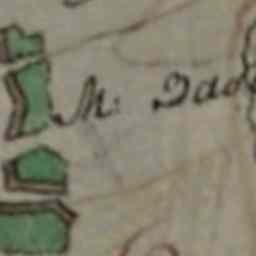 M: Dado